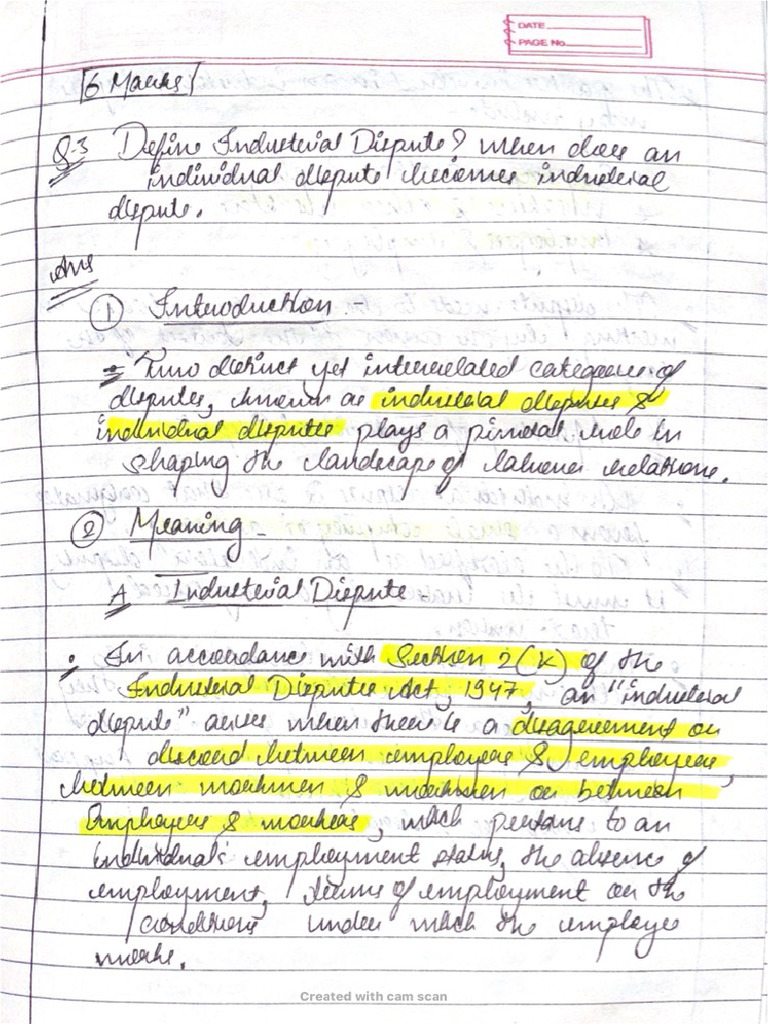 DATE
PAGE No.
[6 Marks]
Q-3 Define Industrial Dispute? When does an
individual dispute becomes industrial
dispute.
Ans
① Introduction
⇒ Two distinct yet interrelated categories of
disputes, known as industrial disputes &
individual disputes plays a pivotal role in
shaping the landscape of labour relations.
② Meaning -
A Industrial Dispute
• In accordance with Section 2(K) of the
Industrial Disputes Act, 1947, an "industrial
dispute" arises when there is a disagreement or
discord between employers & employees,
between workmen & workmen or between
Employers & workers, which pertains to an
individual's employment status, the absence of
employment, terms of employment or the
conditions under which the employee
works.
Created with cam scan